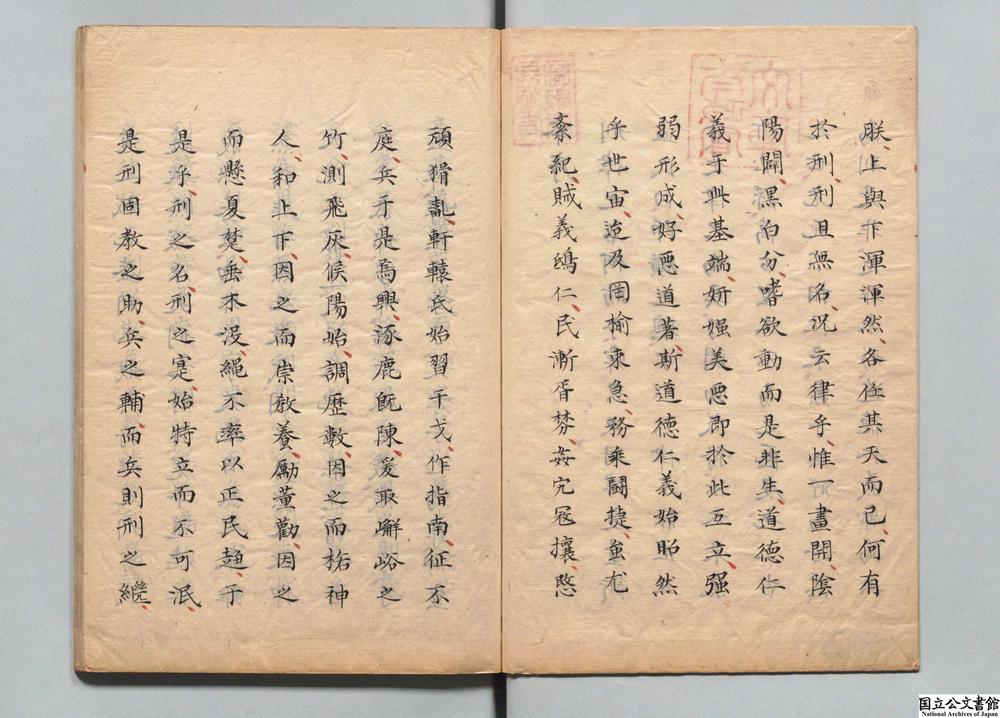 朕、上與下渾渾然、各任其天而已、何有
於刑、刑且無名、况云律乎、惟一畫開、陰
陽闢、黑白分、嗜欲動而是非生、道德仁
義于此基端、妍媸美惡即於此互立、强
弱形成、好惡道著、斯道德仁義始昭然
乎世宙、迨及罔揄東急、務乘鬪捷、蚩尤
紊紀、賊義鴟仁、民漸胥棼、姦宄冦攘、愍
頑猾亂、軒轅氏始習干戈、作指南、征不
庭、兵于是焉興、涿鹿旣陳、爰取嶰峪之
竹、測飛灰、候陽始、調歷數、因之而格神
人、和上下、因之而崇教養、勵董勸、因之
而懸夏楚、垂木没、繩不率以正民趨、于
是乎、刑之名、刑之寔、始特立而不可泯、
是刑固教之助、兵之輔、而兵則刑之繼、
国立公文書館
National Archives of Japan